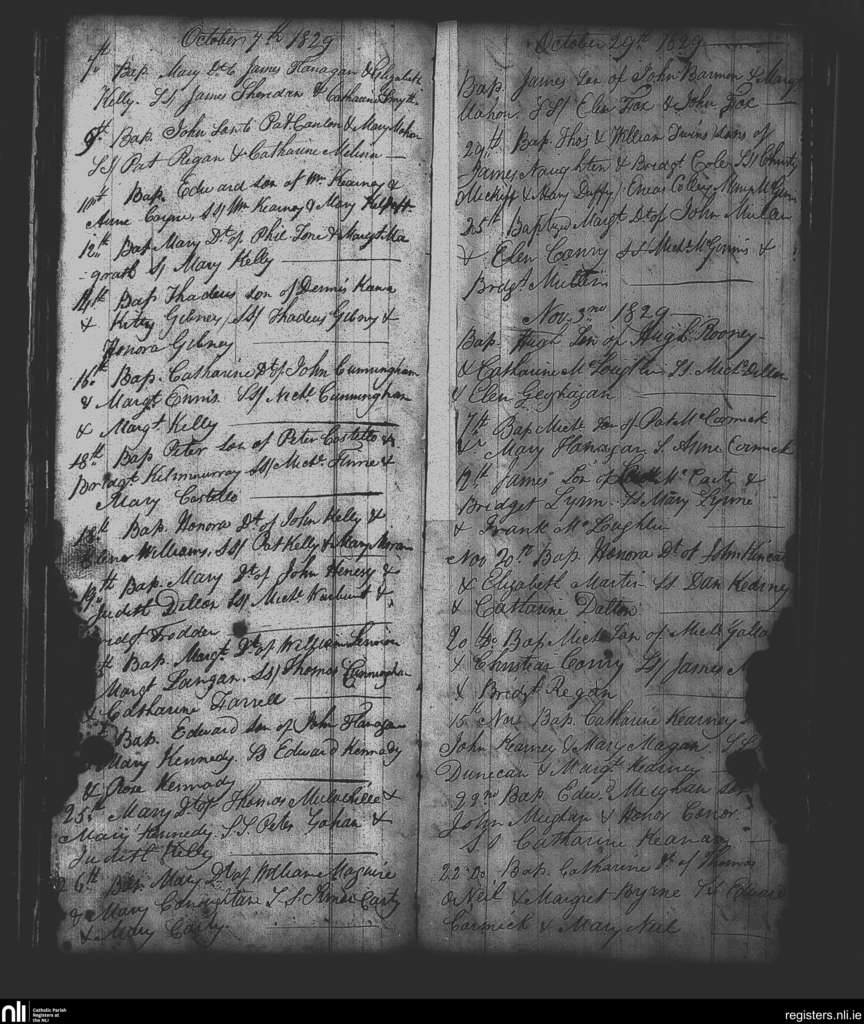 October 7th 1829
7th Bap. Mary Dt to James Flanagan & Elizabeth
Kelly. SS/ James Sheridan & Catharine Smyth
9th Bap. John Son to Pat Canton & Mary Mahon
SS/ Pat Regan & Catharine
10th Bap. Edward son of Wm Kearney &
Anne Coyne, SS/ Wm Kearney & Mary
12th Bap Mary Dt of Phil Fone & Margt Ma
-grath S/ Mary Kelly
14th Bap Thadeus son of Dennis
& Kitty Gibney, SS/ Thadeus Gibny &
Honora Gibney
16th Bap. Catharine Dt of John Cunningham
& Margt Ennis SS/ Michl Cunningham
& Margt Kelly
18th Bap Peter Son of Peter Costello &
Bridgt Kilmmurray SS/ Michl &
Mary Costello
18th Bap. Honora Dt of John Kelly &
Elenor Williams, SS/ Pat Kelly & Mary Moran
19th Bap. Mary Dt of John Henery &
Judith Dillon SS/ Michl &
Bap. Margt Dt of William Lennon
Margt Langan. SS/ Thomas Cunningham
& Catharine Farrell
Bap. Edward Son of John Flanagan
Mary Kennedy. SS Edward Kennady
& Rose Kennady
25th Mary Dt of Thomas &
Mary Kennedy. S.S. Peter Gahan &
Judith Kelly
26th Bap. Mary Dt of William Maguire
& Mary SS James Carty
& Mary Carty.
October 29th 1829
Bap. James Son of John Bannon & Mary
Mahon SS/ Elen Fox & John Fox
29th Bap Thos & William Twins Sons of
James Naughten & Bridgt Coler SS/ Christy
& Mary Duffy/
25th Baptzd Margt Dt of John
& Elen Conry SS/ Michl McGinnis &
Bridgt
Nov. 3rd 1829
Bap. Hugh Son of Hugh Rooney
& Catharine McLoughlin SS. Michl Dillon
& Elen Geoghagan
7th Bap Michl Son of Pat McCormick
& Mary Flanagan S. Anne Cormick
19th James Son of McCarty &
Bridget Lynn. SS Mary Lynne
& Frank McLoughlin
Nov 20th Bap. Honora Dt of John
& Elizabeth Martin SS Dan Kearney
& Catharine Dalton
20th Do Bap Michl Son of Michl
& Christian Conry SS/ James
& Bridgt Regan
15th Nov Bap. Catharine Kearney
John Kearney & Mary Magan. SS
Dunecan & Margt Kearney
22nd Bap. Edwd Meighan son
John Meighan & Honor Conor.
SS Catharine
22 Do Bap. Catharine Dt of Thomas
ONeil & Margret Byrne SS Edward
Cormick & Mary Neil
nli
Catholic Parish
Registers at
the NLI
registers.nli.ie